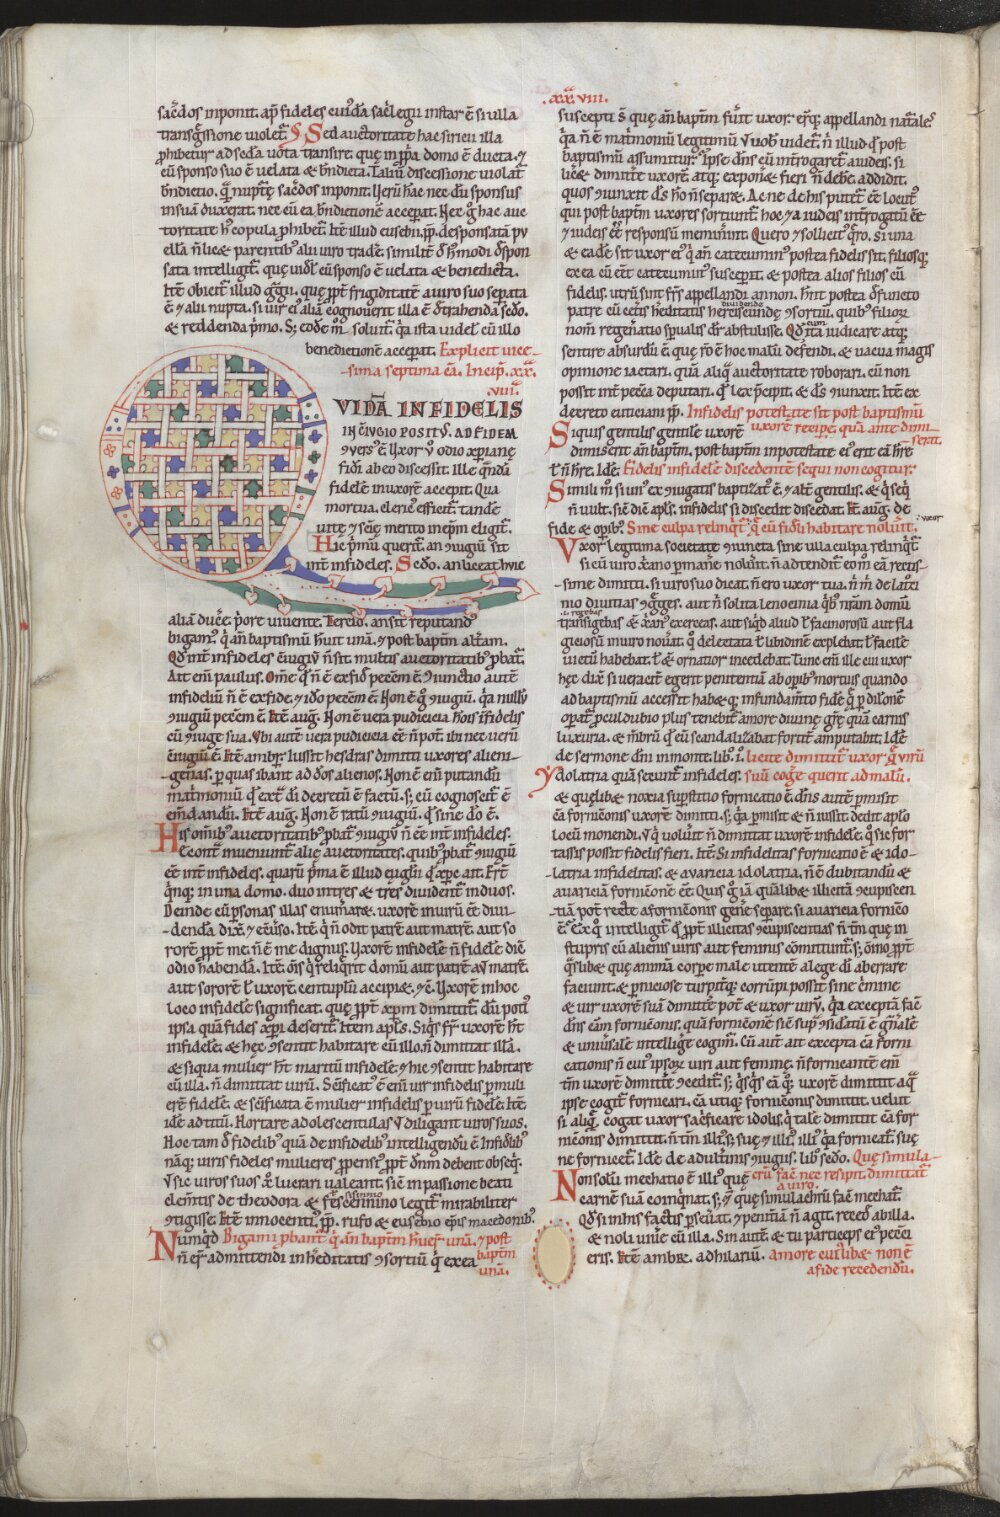 sac̄dos inponit. ap̄ fideles cuiđa sac̓legii instar ē si ulla
transg̃ssione uiolet᷑. Sed auctoritate hac sirici illa
ꝓhibet᷑ ad scđa uota transire. quę in ꝓp̓a domo ē ducta. ⁊
cū sponso suo ē uelata & bn̄dicta. Taliū discessione uiolat᷑
bn̄dictio. q̄ nuptę sac̄dos inponit. Ụerū hæc nec dū sponsus
in suā duxerat. nec cū ea bn̄dictionē acceperat. Nec g̊ hac auc
toritate h̓ copula ꝓhibet᷑. Itē illud eusebii. pp̄. desponsatā pu
ellā n̄ lic& parentibꝰ alii uiro tradē. similit̓ đ h̓modi đspon
sata intelligit᷑. quę uiđl cū sponso ē uelata & benedicta.
Itē obicit᷑ illud g̓gorii. quę ꝓpt̓ frigiditatē a uiro suo seꝑata
ē ⁊ alii nupta. si uir eiꝰ aliā cognouerit illa ē đtrahenda scđo.
& reddenda p̓mo. Sꝫ eođe m̊ soluit᷑. q̓a ista uidel& cū illo
benedictionē acceperat. Explicit uice-
-sima septima cā. Incip̄. xx̄.
viii.
VIDĀ INFIDELIS
IN C̄IVGIO POSITVS. AD FIDEM
ꝯuersꝰ ē. Ụxor ū odio xp̄ianę
fidei ab eo discessit. Ille quēdā
fidelē in uxorē accepit. Qua
mortua. clericꝰ efficit᷑. tandē
uitę ⁊ sciē merito in ep̄m eligit᷑.
Hic p̓mū querit᷑. an ꝯiugiū sit
int̓ infideles. Scđo. an liceat huic
aliā ducē p̓ore uiuente. Tercio. an sit reputandꝰ
bigamꝰ q̓ an̄ baptismū h̓uit unā. ⁊ post baptm̄ alt̓am.
Qđ int̓ infideles c̄iugiū n̄ sit. multis auctoritatibꝰ ꝓbat᷑.
Ait em̄ paulus. Om̄e q̊ n̄ ē ex fide pecc̄m ē. ꝯiunctio autē
infideliū n̄ ē ex fide. ⁊ iđo pecc̄m ē. Non ē g̊ ꝯiugiū. q̓a nullū
ꝯiugiū pecc̄m ē. Itē aug. Non ē uera pudicicia hōis īfidelis
cū ꝯiuge sua. Vbi autē uera pudicicia ēē n̄ pot᷑. ibi nec uerū
c̄iugiū ē. Itē ambr̄. Iussit hesdras dimitti uxores alieni-
-genas. ꝑ quas ibant᷑ ad đos alienos. Non ē em̄ putandū
mat̓moniū q̊ ext̓ đi decretū ē factū. sꝫ cū cognoscit᷑ ē
em̄dandū. Itē aug. Non ē ratū ꝯiugiū. q̊ sine đo ē.
His om̄ibꝰ auctoritatibꝰ ꝓbat᷑ ꝯiugiū n̄ ēē int̓ infideles.
Econt̓ inueniunt᷑ alię auctoritates. quibꝰ ꝓbat᷑ ꝯiugiū
ēē int̓ infideles. quarū p̓ma ē illud eug̃lii q̊ xp̄c ait. Er̄t
q̓nqꝫ in una domo. duo int̓ tres & tres diuident᷑ in duos.
Deinde cū ꝑsonas illas enum̓are. uxorē in uirū ēē diui-
-dendā dix& ⁊ ec̄uso. Itē q̓ n̄ odit patrē aut matrē. aut so
rorē ꝓpt̓ me. n̄ ē me dignus. Uxorē infidelē n̄ fidelē diē
odio habendā. Itē. ōis q̓ reliq̓rit domū aut patrē aut matrē.
aut sororē ł uxorē. centuplū accipi&. ⁊c̄. Uxorē in hoc
loco infidelē significat. quę ꝓpt̓ xp̄m dimittit᷑. dū potiꝰ
ipsa quā fides xp̄i deserit᷑. Item apl̄s. Siqͥs fr̄ uxorē h̓t
infidelē. & hęc ꝯsentit habitare cū illo. n̄ dimittat illā.
& siqua mulier h̓t maritū infidelē. ⁊ hic ꝯsentit habitare
cū illa. n̄ dimittat uirū. Sc̄ificatꝰ ē em̄ uir infidelis ꝑ muli
erē fidelē. & sc̄ificata ē mulier infidelis ꝑ uirū fidelē. Itē
idē ad titū. Hortare adolescentulas ut diligant uiros suos.
Hoc tam đ fidelibꝰ quā de infidelibꝰ intelligendū ē. Infidelibꝰ
nāqꝫ uiris fideles mulieres ꝓpensiꝰ ꝓpt̓ đnm debent obseq̓.
Vt sic uiros suos xo̊ lucrari ualeant. sic in passione beati
clem̄tis de theodora & sisinnio legit᷑ mirabiliter
ꝯtigisse. Itē innocentiꝰ. pp̄. rufo & eusebio ep̄is macedonibꝰ.
Numqđ Bigami ꝓbant᷑ q̓ an̄ baptm̄ h̓uer̄ unā. ⁊ post
n̄ er̄ admittendi in h̓editatis ꝯsortiū q̓ ex ea baptm̄
unā.
.xx̄. viii.
suscepti s̄ quę an̄ baptm̄ fuit uxor. er̄qꝫ appellandi nat̓ales
q̓a n̄ ē mat̓moniū legitimū ut uob̄ uidet᷑. n̄ illud q̊ post
baptismū assumitur. Ipse dn̄s cū int̓rogaret᷑ a iudeis. si
lic& dimittē uxorē. atqꝫ expon& fieri n̄ debē. addidit.
quos ꝯiunxit đs hō n̄ separ&. Ac ne de his putet᷑ ēē locutꝰ
qui post baptm̄ uxores sortiunt᷑. hoc ⁊ a iudeis int̓rogatū ēē
⁊ iudeis ēē responsū meminint. Quero ⁊ sollicitꝰ q̓ro. si una
& eadē sit uxor eiꝰ q̓ an̄ catecuminꝰ postea fidelis sit. filiosqꝫ
ex ea cū eēt catecuminꝰ susceperit. & postea alios filios cū
fidelis. utrū sint fr̄s appellandi an non. h̓nt postea đfuncto
patre cū eetis h̓editatis herciscundę dividendę ꝯsortiū. quibꝰ filioꝝ
nom̄ regen̓atio spualis cr̄ abstulisse. Qđ cum ita iudicare atqꝫ
sentire absurdū ē. quę r̊o ē hoc malū defendi. & uacua magis
opinione iactari. quā aliq̄ auctoritate roborari. cū non
possit int̓ pecc̄a deputari. q̊ lex p̄cipit. & đs ꝯiunxit. Itē ex
decreto euticiani pp̄. Infidelis potestate sit post baptismū
Siquis gentilis gentilē uxorē uxorē recipē. quā ante dimi-
dimiserit an̄ baptm̄. post baptm̄ in potestate eiꝰ erit eā h̓re serit.
ł n̄ h̓re. Idē. Fidelis infidelē discedentē sequi non cogitur.
Simili m̊ si unꝰ ex ꝯiugatis baptizatꝰ ē. ⁊ alt̓ gentilis. & q̓ seq̓
n̄ uult. sic dič apls̄. infidelis si discedit discedat. Itē aug. de uxor
fide & opibꝰ. Sine culpa relinqͥt᷑ q̓ cū fideli habitare noluit᷑.
Vxor legitima societate ꝯiuncta sine ulla culpa relinqͥt᷑
si cū uiro x̄ano ꝑmanē noluit᷑. n̄ adtendit᷑ eom̊ eā rectis-
-sime dimitti. si uiro suo dicat. n̄ ero uxor tua. n̄ m̓ de latroci
nio diuitias ꝯg̃ges. aut n̄ solita lenocinia q̓bꝰ nr̄am domū
transigebas in rogebas & q̊ an̄ exerceas. aut siqͥd aliud ł facinorosū aut fla
giciosū in uiro nouat᷑. q̊ delectata ł libidinē explebat. ł facile
uictū habebat. ł & ornatior incedebat. Tunc em̄ ille cui uxor
hęc dic̄ si ueracit̓ egerit penitentiā ab opibꝰ mortuis quando
ad baptismū accessit hab&qꝫ in fundam̄to fidē q̄ ꝑ dilōnē
opat᷑. ꝓculdubio plus tenebit᷑ amore diuinę gr̄ę quā carnis
luxuria. & m̄brū q̊ eū scandalizabat fortit̓ amputabit. Idē
de sermone dn̄i in monte. lib̊. i. Licite dimittit᷑ uxor q̄ uirū
Ydolatria quā secunt᷑ infideles. suū cogē querit ad malū.
& quęlib& noxia suꝑstitio fornicatio ē. dn̄s autē ꝑmisit
cā fornicōnis uxorē dimitti. sꝫ q̓a ꝑmisit & n̄ iussit. dedit aplo̊
locū monendi. Vt q̓ voluit᷑ n̄ dimittat uxorē infidelē. q̊ sic for
tassis possit fidelis fieri. Itē. Si infidelitas fornicatio ē & ido-
-latria infidelitas. & auaricia idolatria. n̄ ē dubitandū &
auariciā fornicōnē ēē. Quis g̊ iā quālib& illicitā ꝯcupiscen
-tiā pot᷑ recte a fornicōnis gen̓e separē. si auaricia fornicō
ē. Ex q̊ intelligit᷑ q̊ ꝓpt̓ illicitas ꝯcupiscentias n̄ tm̄ que in
stupris cū alienis uiris aut feminis cōmittunt᷑. sꝫ om̄o ꝓpt̓
q̄slib& quę animā corpe male utentē a lege đi aberrare
faciunt. & ꝑniciose turpit̓qꝫ corrūpi possit sine c̓mine
& uir uxorē suā dimittē pot᷑ & uxor uirū. q̓a exceptā fac̄
dn̄s cām fornicōnis. quā fornicōnē sic̄ sup ꝯsiđatū ē gn̄ale
& uniusalē intellige cogim᷑. Cū aut̓ ait excepta cā forni
cationis n̄ eiꝰ ipsoꝝ uiri aut feminę. n̄ fornicantē em̄
tm̄ uxorē dimittē ꝯcedit᷑. sꝫ q̓sq̓s eā q̊qꝫ uxorē dimittit a q̄
ipse cogit᷑ fornicari. cā utiqꝫ fornicōnis dimittit. uelut
si aliq̄ cogat uxor sac̓ficare idolis. q̓ talē dimittit cā for
nicōnis dimittit. n̄ tm̄ illiꝰ. sꝫ suę ⁊ illiꝰ. illiꝰ q̓a fornicat᷑. suę
ne fornicet᷑. Idē de adult̓inis ꝯiugiis. lib̊ scđo. Que simula-
Non solū mechatio ē illiꝰ quę crū fac̄ nec resipit. dimittat᷑
carnē suā coinq̓nat. sꝫ ⁊ quę simulachrū fac̄ mechat᷑. a uiro.
Qđ si in his factis ꝑseuat. ⁊ penit̄iā n̄ agit. recede ab illa.
& noli uiuē cū illa. Sin autē & tu particeps er̄ pecc̄i
eiꝰ eris. Itē ambr̄. ad hilariū. Amore cuiuslib& non ē
a fide recedendū.